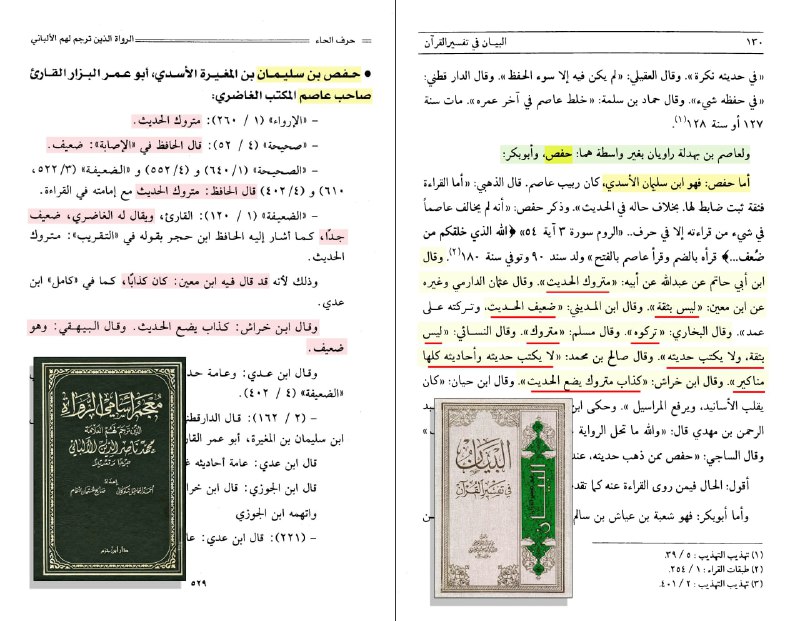 ١٣٠ البيان في تفسير القرآن
«في حديثه نكرة». وقال العقيلي: «لم يكن فيه إلا سوء الحفظ». وقال الدار قطني:
«في حفظه شيء». وقال حماد بن سلمة: «خلط عاصم في آخر عمره». مات سنة
١٢٧ أو سنة ١٢٨(١).
ولعاصم بن بهدلة راويان بغير واسطة هما: حفص، وأبوبكر:
أما حفص: فهو ابن سليمان الأسدي، كان ربيب عاصم. قال الذهبي: «أما القراءة
فثقة ثبت ضابط لها. بخلاف حاله في الحديث». وذكر حفص: «أنه لم يخالف عاصماً
في شيء من قراءته إلا في حرف.. «الروم سورة ٣ آية ٥٤» ﴿الله الذي خلقكم من
ضُعف...﴾ قرأه بالضم وقرأ عاصم بالفتح» ولد سند ٩٠ وتوفي سنة ١٨٠(٢). وقال
ابن أبي حاتم عن عبدالله عن أبيه: «متروك الحديث». وقال عثمان الدارمي وغيره
عن ابن معين: «ليس بثقة». وقال ابن المديني: «ضعيف الحديث، وتركته على
عمد». وقال البخاري: «تركوه». وقال مسلم: «متروك». وقال النسائي: «ليس
بثقة، ولا يكتب حديثه». وقال صالح بن محمد: «لا يكتب حديثه وأحاديثه كلها
مناكير». وقال ابن خراش: «كذاب متروك يضع الحديث». وقال ابن حيان: «كان
يقلب الأسانيد، ويرفع المراسيل». وحكى ابن
الرحمن بن مهدي قال: «والله ما تحل الرواية
وقال الساجي: «حفص ممن ذهب حديثه، عند
أقول: الحال فيمن روى القراءة عنه كما تقد
وأما أبوبكر: فهو شعبة بن عياش بن سالم
(١) تهذيب التهذيب: ٥ / ٣٩.
(٢) طبقات القراء: ١ / ٢٥٤.
(٣) تهذيب التهذيب: ٢ / ٤٠١.
البيان
في تفسير القرآن
البيان
= حرف الحاء الرواة الذين ترجم لهم الألباني =
• حفص بن سليمان بن المغيرة الأسدي، أبو عمر البزار القارئ
صاحب عاصم المكتب الغاضري:
– «الإرواء» (١ / ٢٦٠): متروك الحديث.
– «صحيحة» (٤ / ٥٢): قال الحافظ في «الإصابة»: ضعيف.
– «الصحيحة» (١/ ٦٤٠) و (٤/ ٥٥٢) و «الضعيفة» (٣/ ٥٢٢،
٦١٠) و (٤/ ٤٠٢) قال الحافظ: متروك الحديث مع إمامته في القراءة.
– «الضعيفة» (١ / ١٢٠): القارئ، ويقال له الغاضري، ضعيف
جداً، كما أشار إليه الحافظ ابن حجر بقوله في «التقريب»: متروك
الحديث.
وذلك لأنه قد قال فيه ابن معين: كان كذابًا، كما في «كامل» ابن
عدي.
وقال ابن خراش: كذاب يضع الحديث. وقال البيهقي: وهو
ضعيف.
وقال ابن عدي: وعامة حد
«الضعيفة» (٤ / ٤٠٢).
– (٢ / ١٦٢): قال الدارقط
ابن سليمان بن المغيرة، أبو عمر القار
قال ابن عدي: عامة أحاديثه غ
قال ابن الجوزي: قال ابن خرا
واتهمه ابن الجوزي
– (٢٢١): قال ابن عدي: عا
٥٢٩
معجم أسامي الرواة
الذين ترجم لهم العلامة
محمد ناصر الدين الألباني
دار ابن حزم